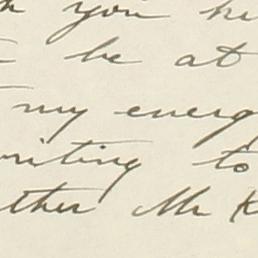 you
be at
my energ
writing to
ther Mr K